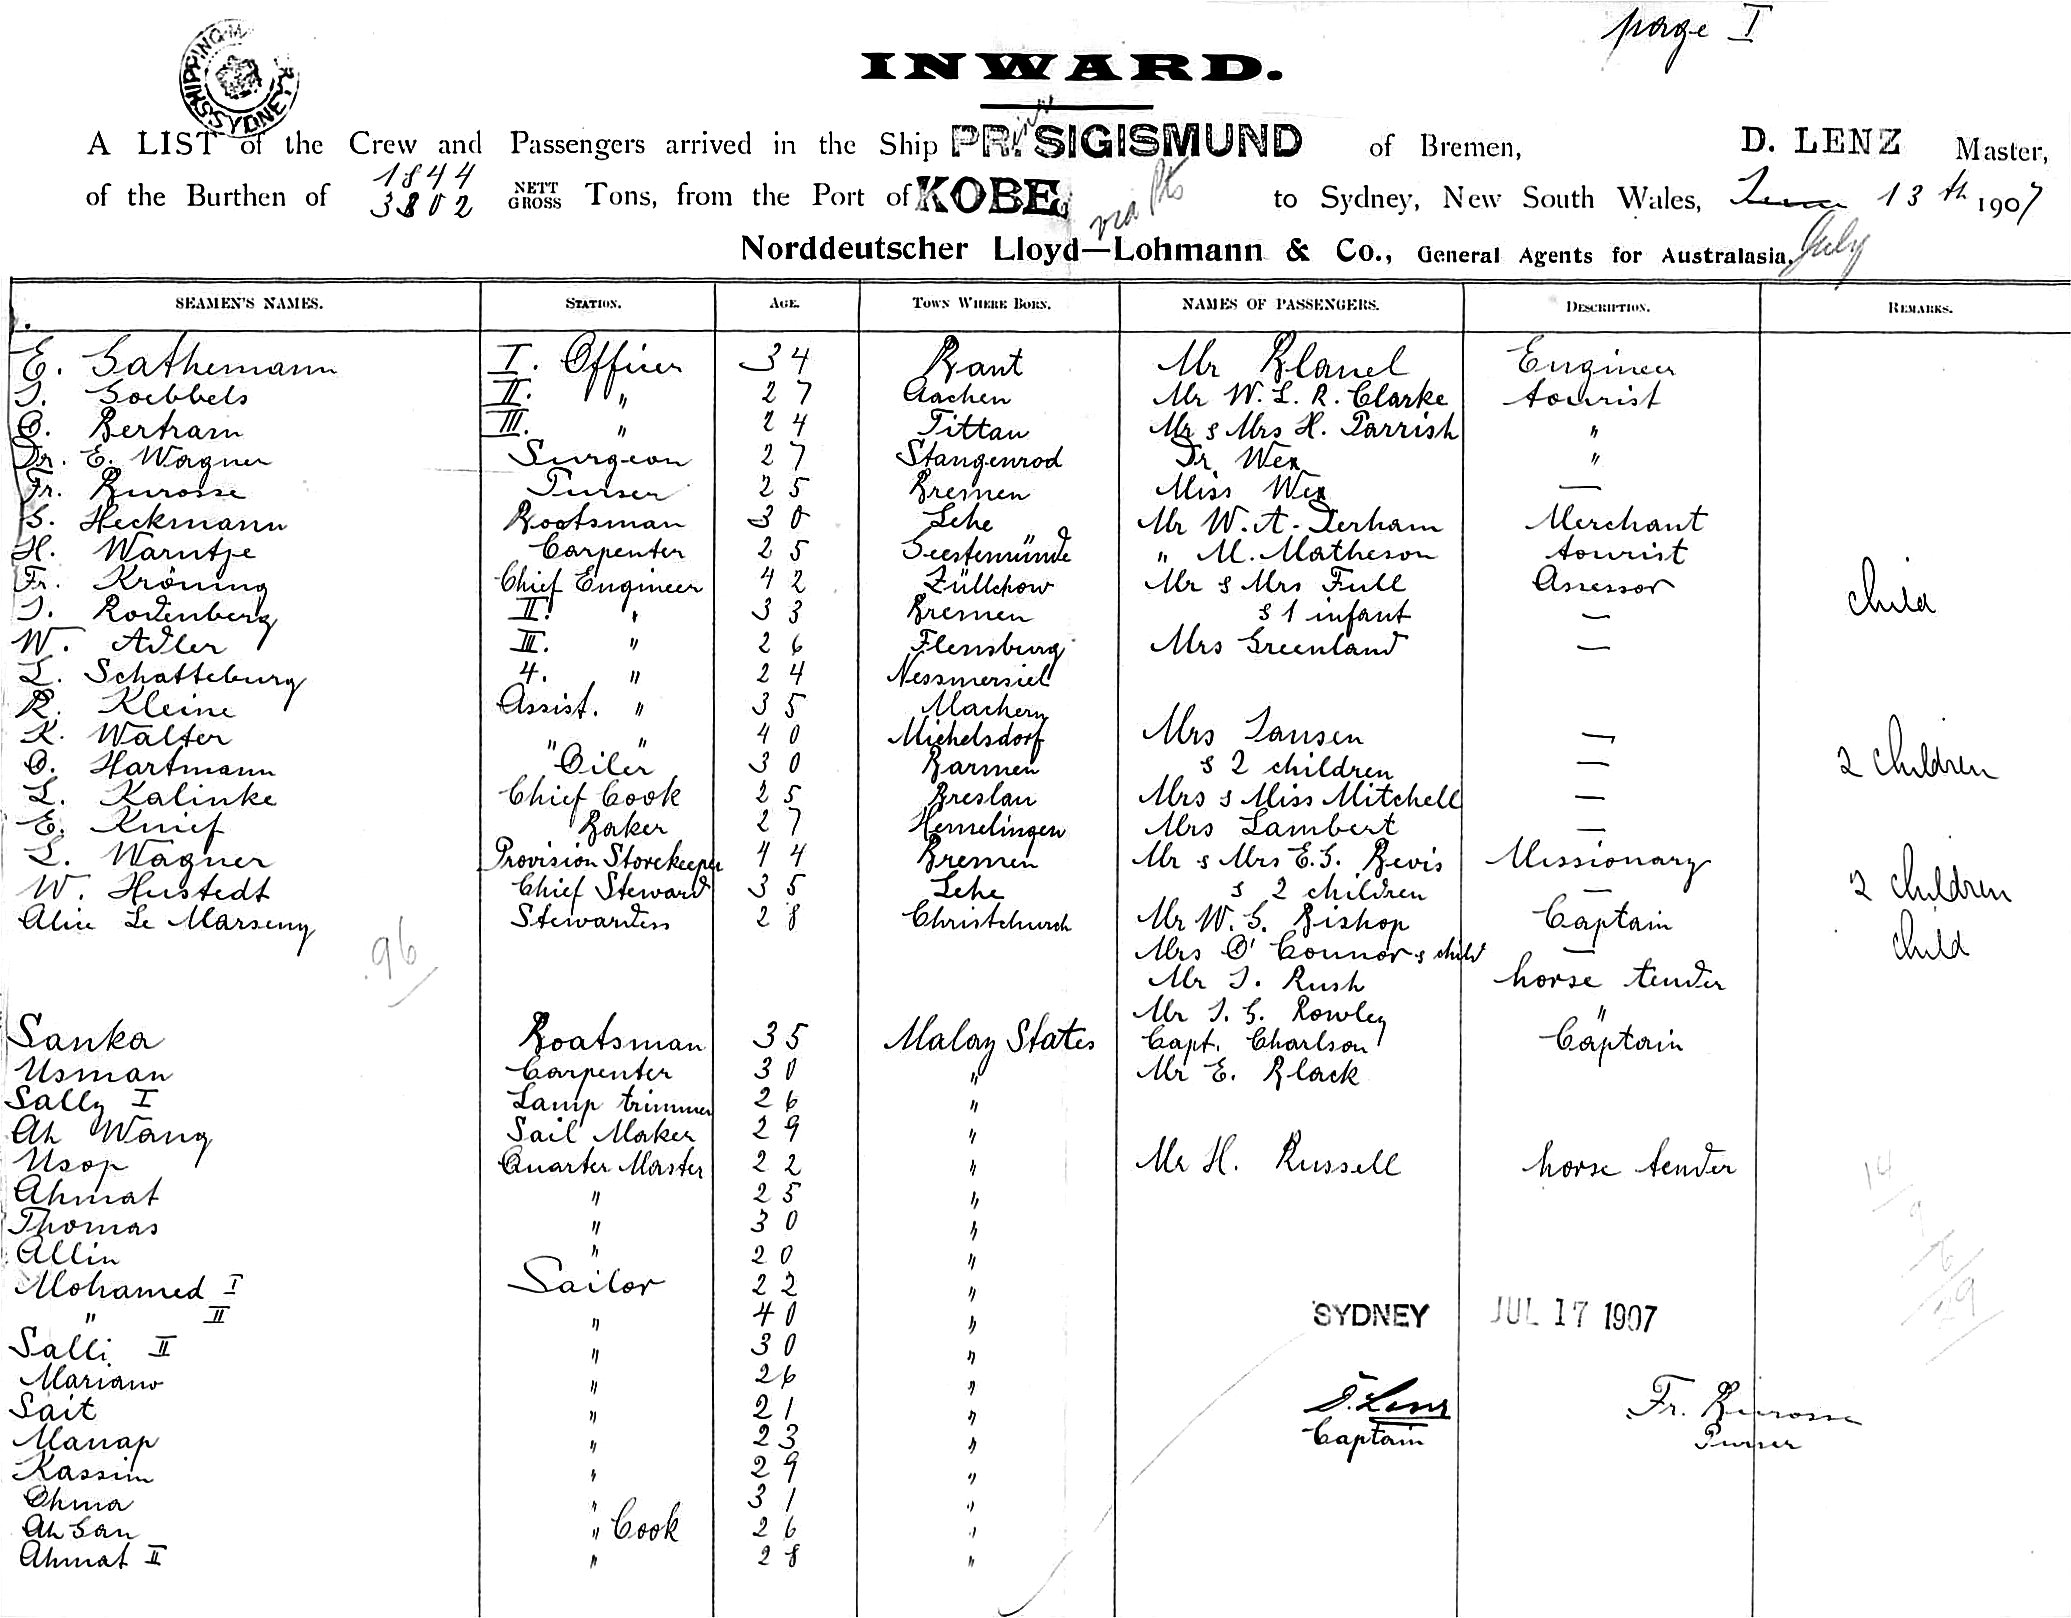 page I
SHIPPING M SYDNEY
INWARD.
A LIST of the Crew and Passengers arrived in the Ship PR. SIGISMUND of Bremen, D. LENZ Master,
of the Burthen of 1844 3302 NETT GROSS Tons, from the Port of KOBE via Pts to Sydney, New South Wales, 13th 1907
July
Norddeutscher Lloyd—Lohmann & Co., General Agents for Australasia.
SEAMEN'S NAMES. STATION. AGE. TOWN WHERE BORN. NAMES OF PASSENGERS. DESCRIPTION. REMARKS.
E. Gathemann I. Officer 34 Bant Mr Blanel Engineer
J. Goebbels II. " 27 Aachen Mr W. L. R. Clarke tourist
O. Bertram III. " 24 Zittau Mr & Mrs H. Parrish "
Dr. E. Wagner Surgeon 27 Stangenrod Dr. Wex "
Fr. Burosse Purser 25 Bremen Miss Wex —
G. Heckmann Bootsman 30 Lehe Mr W. A. Derham Merchant
H. Warntje Carpenter 25 Geestemünde " M. Matheson tourist
Fr. Kröning Chief Engineer 42 Züllchow Mr & Mrs Full Assessor
J. Rodenberg II. " 33 Bremen & 1 infant — child
W. Adler III. " 26 Flensburg Mrs Greenland —
L. Schatteburg 4. " 24 Nessmersiel
R. Kleine Assist. " 35 Machern
K. Walter " " 40 Michelsdorf Mrs Jansen —
O. Hartmann Oiler 30 Barmen & 2 children — 2 children
L. Kalinke Chief Cook 25 Breslau Mrs & Miss Mitchell —
E. Knief Baker 27 Hemelingen Mrs Lambert —
L. Wagner Provision Storekeeper 44 Bremen Mr & Mrs E. G. Bevis Missionary
W. Hustedt Chief Steward 35 Lehe & 2 children — 2 children
Alice Le Marseny Stewardess 28 Christchurch Mr W. G. Bishop Captain
96 Mrs O'Connor & child — child
Mr J. Rush horse tender
Mr J. G. Rowley "
Sanka Boatsman 35 Malay States Capt. Charlson Captain
Usman Carpenter 30 " Mr E. Black
Sally I Lamp trimmer 26 "
Ah Wang Sail Maker 29 "
Usop Quarter Master 22 " Mr H. Russell horse tender
Ahmat " 25 "
Thomas " 30 "
Allin " 20 "
Mohamed I Sailor 22 "
" II " 40 " SYDNEY JUL 17 1907
Salli II " 30 "
Mariano " 26 "
Sait " 21 " D. Lenz Fr. Burosse
Manap " 23 " Captain Purser
Kassim " 29 "
Ohma " 31 "
Ah San " Cook 26 "
Ahmat II " 28 "